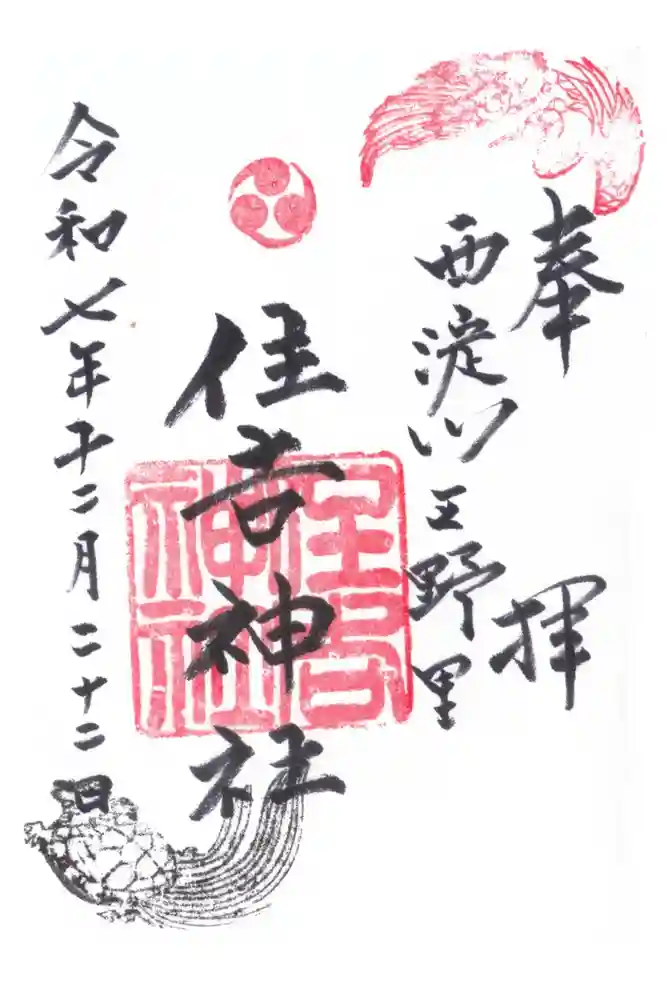 奉拝
西淀川 野里
住吉神社
住吉神社
令和七年十二月二十二日